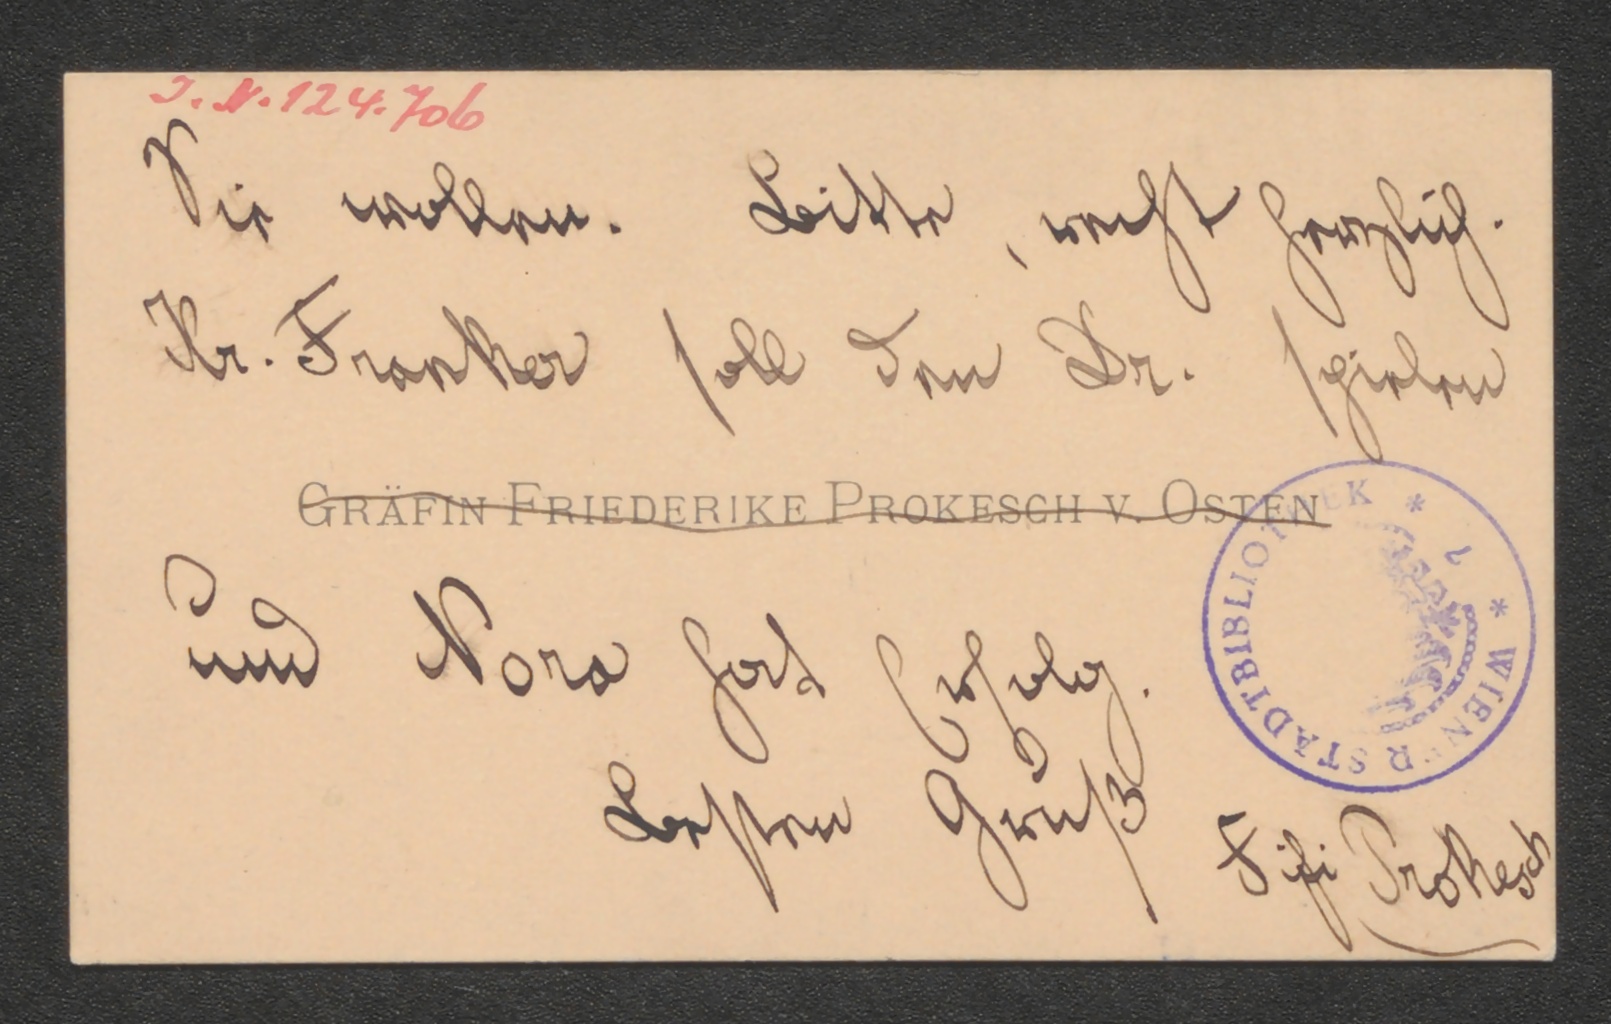 I. N. 124.706
Sie wollen. Bitte, recht herzlich.
Hr. Franker soll den Dr. spielen
GRÄFIN FRIEDERIKE PROKESCH V. OSTEN
und Nora hat Erfolg.
Besten Gruß
Fifi Prokesch
* WIENER STADTBIBLIOTHEK *